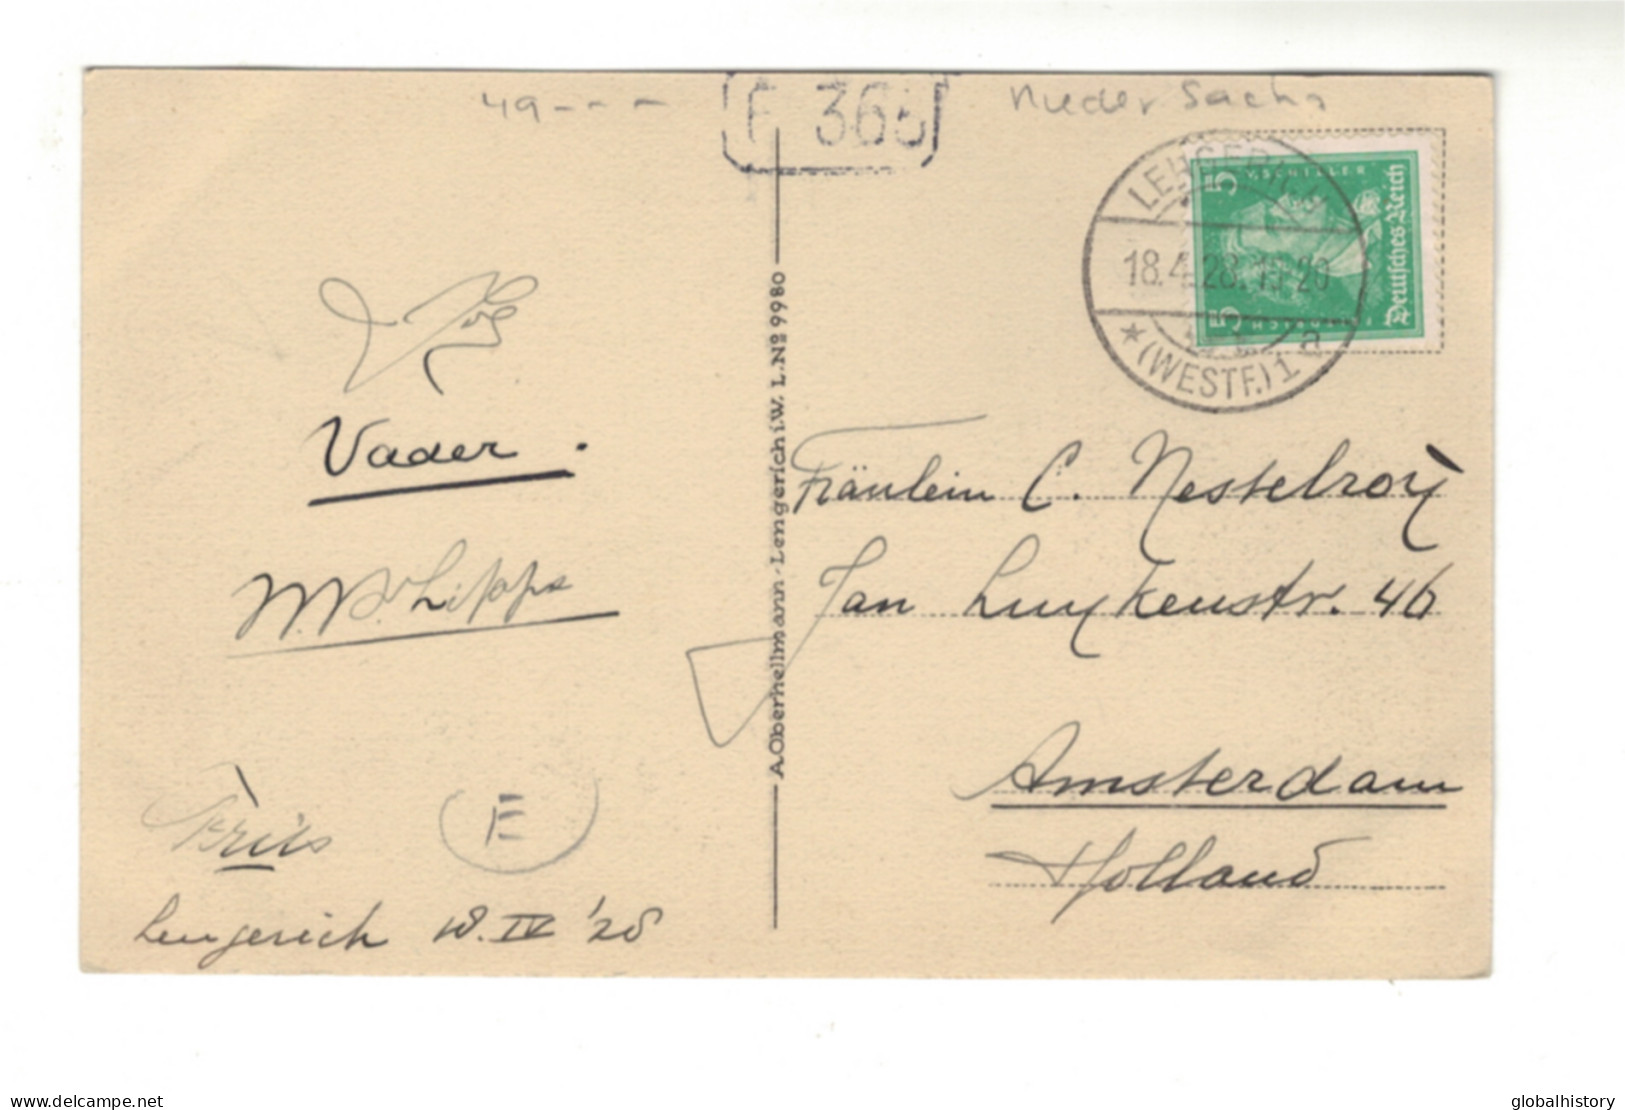 49 - - -
F 365
LENGERICH
18.4.28.19-20
* (WESTF.) 1 a
5 5
F.V.SCHILLER
Deutsches Reich
Vader.
Frits
Lengerich 18. IV '28
A. Oberhellmann · Lengerich i.W. L.No 9980
Fräulein C. Nesselroÿ
Jan Luykenstr. 46
Amsterdam
Holland
E
delcampe.net
globalhistory